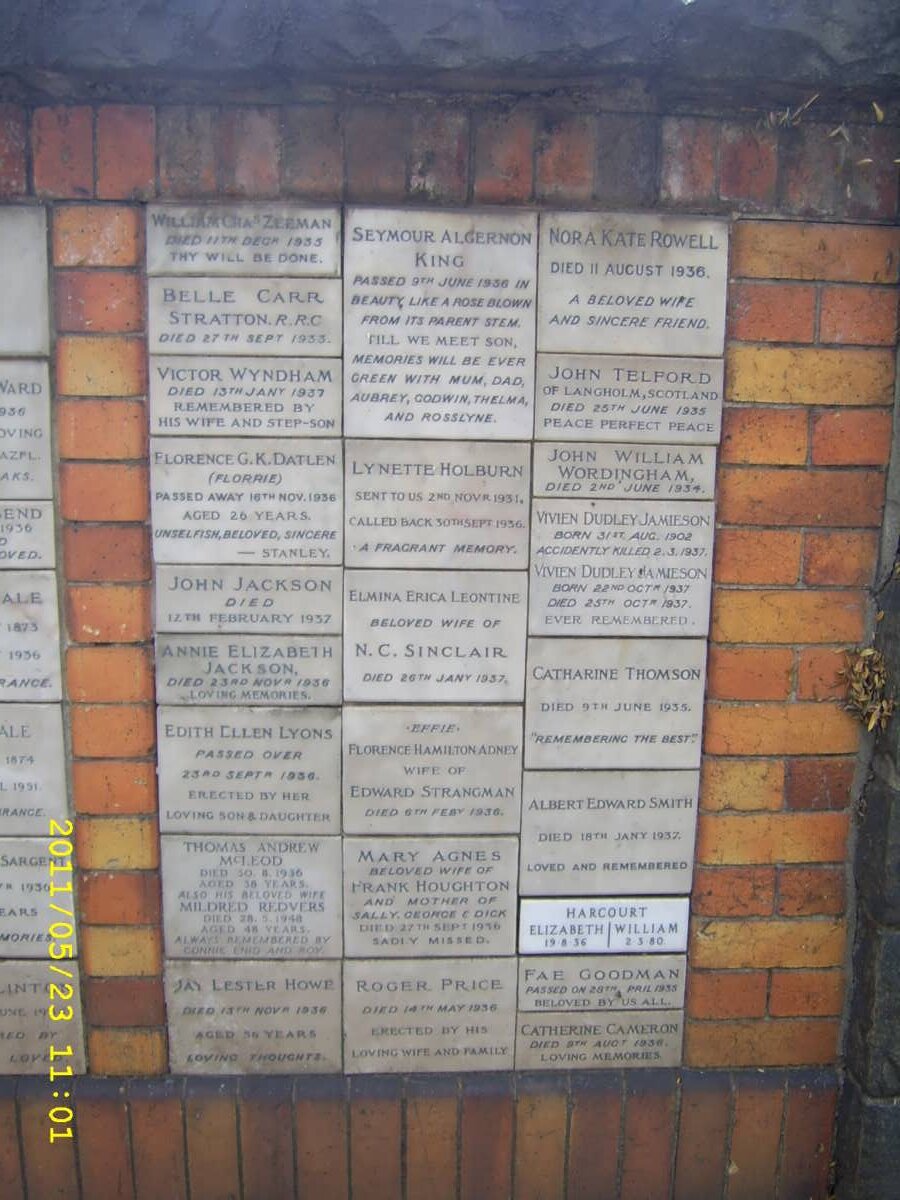 WARD
936
OVING
AZEL.
AKS.
SEND
1936
D
OVED.
ALE
1873
1936
RANCE.
ALE
1874
L 1931.
RANCE.
SARGENT
1936
EARS
MORIES.
LINTO
UNE
RED BY
LOVED
WILLIAM CHAS ZEEMAN
DIED 11TH DECR 1935
THY WILL BE DONE.
BELLE CARR
STRATTON. R.R.C
DIED 27TH SEPT 1933.
VICTOR WYNDHAM
DIED 13TH JANY 1937
REMEMBERED BY
HIS WIFE AND STEP-SON
FLORENCE G.K. DATLEN
(FLORRIE)
PASSED AWAY 16TH NOV. 1936
AGED 26 YEARS.
UNSELFISH, BELOVED, SINCERE
— STANLEY.
JOHN JACKSON
DIED
12TH FEBRUARY 1937
ANNIE ELIZABETH
JACKSON,
DIED 23RD NOVR 1936
LOVING MEMORIES.
EDITH ELLEN LYONS
PASSED OVER
23RD SEPTR 1936.
ERECTED BY HER
LOVING SON & DAUGHTER
THOMAS ANDREW
MCLEOD
DIED 30.8.1936
AGED 38 YEARS.
ALSO HIS BELOVED WIFE
MILDRED REDVERS
DIED 28.5.1948
AGED 48 YEARS.
ALWAYS REMEMBERED BY
CONNIE ENID AND ROY.
JAY LESTER HOWE
DIED 13TH NOVR 1936
AGED 56 YEARS
LOVING THOUGHTS.
SEYMOUR ALGERNON
KING
PASSED 9TH JUNE 1936 IN
BEAUTY, LIKE A ROSE BLOWN
FROM ITS PARENT STEM.
TILL WE MEET SON,
MEMORIES WILL BE EVER
GREEN WITH MUM, DAD,
AUBREY, GODWIN, THELMA,
AND ROSSLYNE.
LYNETTE HOLBURN
SENT TO US 2ND NOVR 1931,
CALLED BACK 30TH SEPT 1936.
A FRAGRANT MEMORY.
ELMINA ERICA LEONTINE
BELOVED WIFE OF
N.C. SINCLAIR
DIED 26TH JANY 1937.
"EFFIE"
FLORENCE HAMILTON ADNEY
WIFE OF
EDWARD STRANGMAN
DIED 6TH FEBY 1936.
MARY AGNES
BELOVED WIFE OF
FRANK HOUGHTON
AND MOTHER OF
SALLY, GEORGE & DICK
DIED 27TH SEPT 1936
SADLY MISSED.
ROGER PRICE
DIED 14TH MAY 1936
ERECTED BY HIS
LOVING WIFE AND FAMILY
NORA KATE ROWELL
DIED 11 AUGUST 1936.
A BELOVED WIFE
AND SINCERE FRIEND.
JOHN TELFORD
OF LANGHOLM, SCOTLAND
DIED 25TH JUNE 1935
PEACE PERFECT PEACE
JOHN WILLIAM
WORDINGHAM,
DIED 2ND JUNE 1934.
VIVIEN DUDLEY JAMIESON
BORN 31ST. AUG. 1902
ACCIDENTLY KILLED 2.3.1937.
VIVIEN DUDLEY JAMIESON
BORN 22ND OCTR 1937
DIED 25TH OCTR 1937.
EVER REMEMBERED.
CATHARINE THOMSON
DIED 9TH JUNE 1935.
"REMEMBERING THE BEST."
ALBERT EDWARD SMITH
DIED 18TH JANY 1937.
LOVED AND REMEMBERED
HARCOURT
ELIZABETH WILLIAM
19·8·36 2·3·80
FAE GOODMAN
PASSED ON 28TH, PRIL 1935
BELOVED BY US ALL.
CATHERINE CAMERON
DIED 9TH AUGT 1936.
LOVING MEMORIES
2011/05/23 11:01